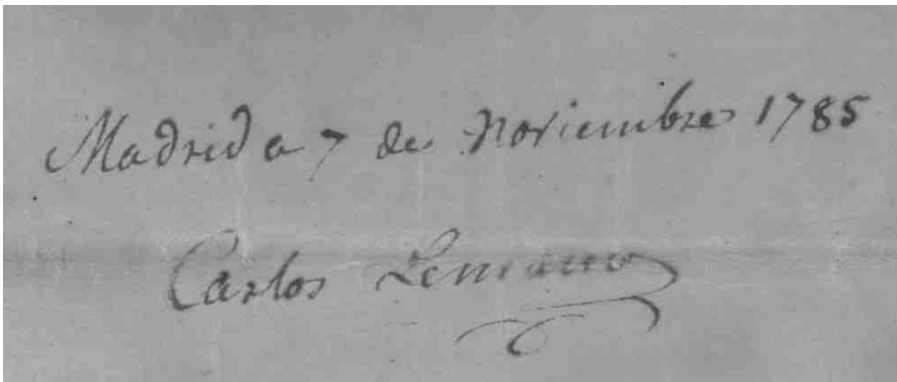 Madrid a 7 de Noviembre 1785
Carlos Lemaur